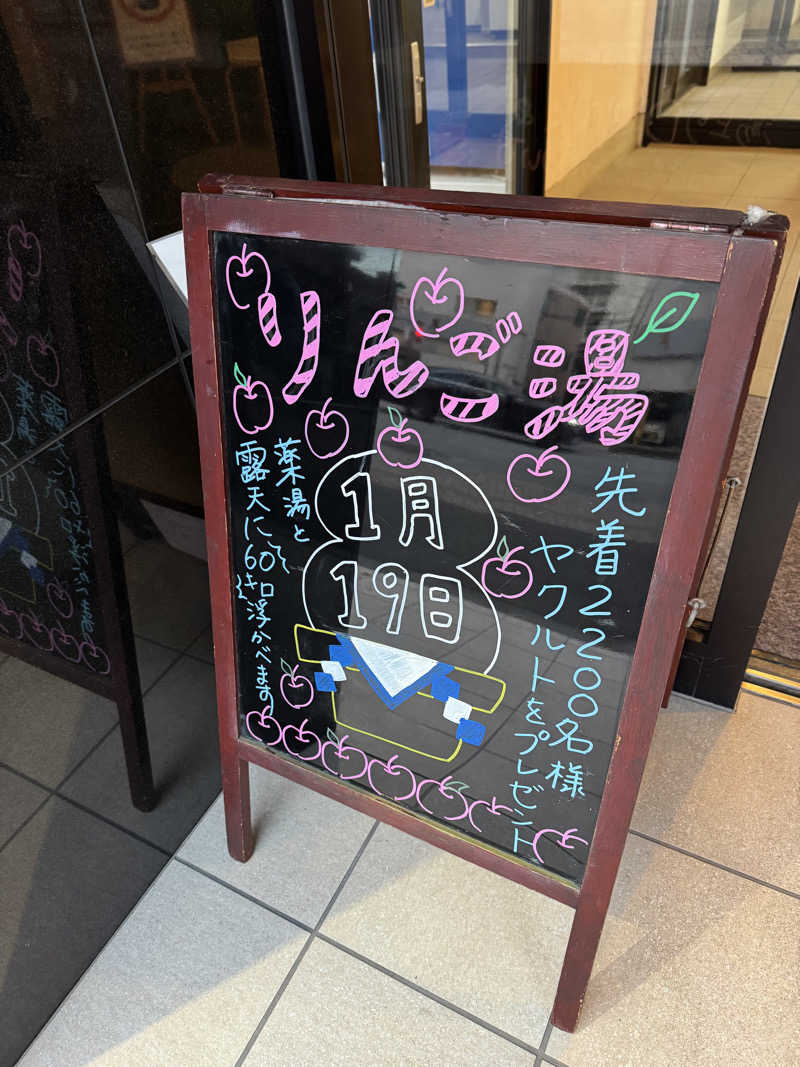 りんご湯
先着2200名様
ヤクルトをプレゼント
1月
19日
薬湯と
露天に60キロ浮かべます